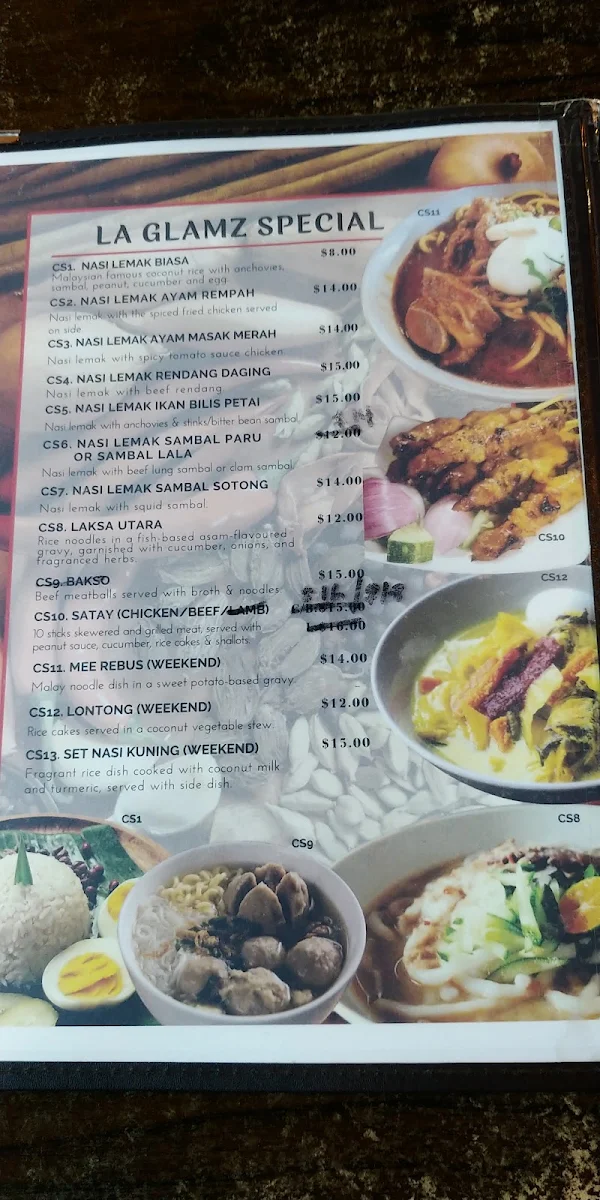 LA GLAMZ SPECIAL
CS11
CS1. NASI LEMAK BIASA $8.00
Malaysian famous coconut rice with anchovies,
sambal, peanut, cucumber and egg.
CS2. NASI LEMAK AYAM REMPAH $14.00
Nasi lemak with the spiced fried chicken served
on side
CS3. NASI LEMAK AYAM MASAK MERAH $14.00
Nasi lemak with spicy tomato sauce chicken.
CS4. NASI LEMAK RENDANG DAGING $15.00
Nasi lemak with beef rendang.
CS5. NASI LEMAK IKAN BILIS PETAI $15.00
Nasi lemak with anchovies & stinks/bitter bean sambal.
CS6. NASI LEMAK SAMBAL PARU $12.00
OR SAMBAL LALA
Nasi lemak with beef lung sambal or clam sambal.
CS7. NASI LEMAK SAMBAL SOTONG $14.00
Nasi lemak with squid sambal.
CS8. LAKSA UTARA $12.00
Rice noodles in a fish-based asam-flavoured
gravy, garnished with cucumber, onions, and
fragranced herbs.
CS10
CS9. BAKSO $15.00
Beef meatballs served with broth & noodles.
CS12
CS10. SATAY (CHICKEN/BEEF/LAMB) C/B:$15.00
10 sticks skewered and grilled meat, served with L:$16.00
peanut sauce, cucumber, rice cakes & shallots.
CS11. MEE REBUS (WEEKEND) $14.00
Malay noodle dish in a sweet potato-based gravy.
CS12. LONTONG (WEEKEND) $12.00
Rice cakes served in a coconut vegetable stew.
CS13. SET NASI KUNING (WEEKEND) $15.00
Fragrant rice dish cooked with coconut milk
and turmeric, served with side dish.
CS1
CS9
CS8